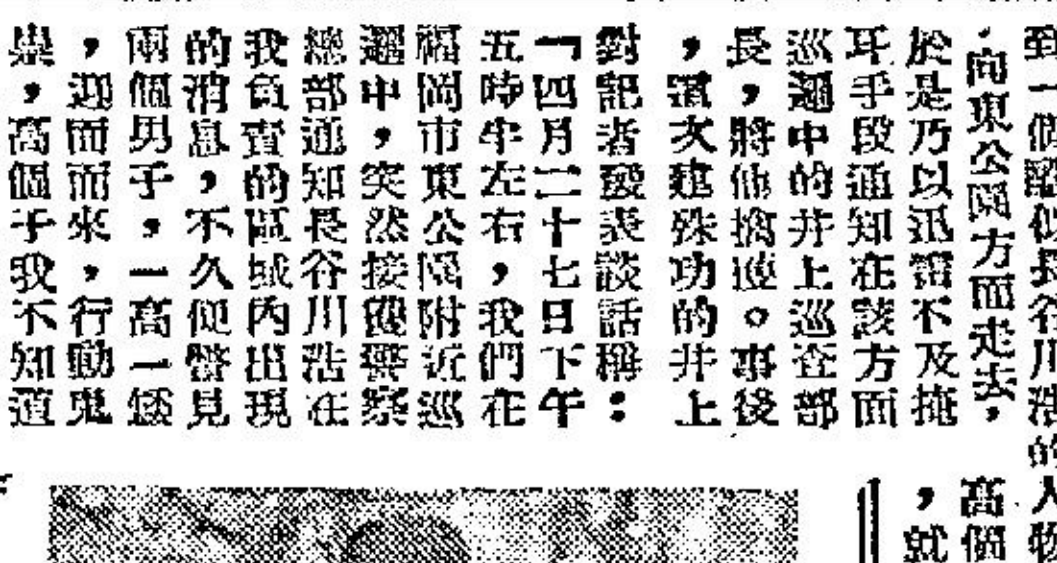 到一個認似長谷川浩的人物
，向東公園方面走去，
於是乃以迅雷不及掩
耳手段通知在該方面
巡邏中的井上巡查部
長，將他擒速。事後
，置次建殊功的井上
對記者發表談話稱：
「四月二十七日下午
五時半左右，我們在
福岡市東公園附近巡
邏中，突然接獲警察
總部通知長谷川浩在
我負責的區域內出現
的消息，不久便瞥見
兩個男子，一高一矮
，迎面而來，行動鬼
祟，高個子我不知道
高個
，就